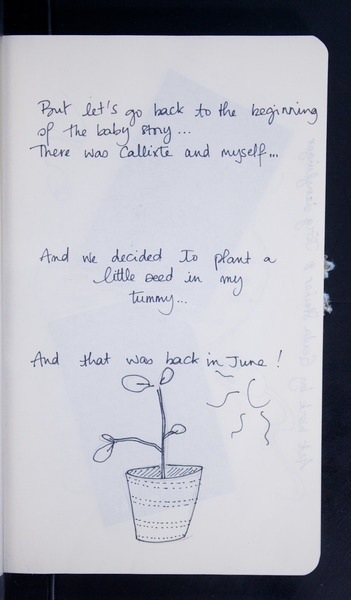 But let's go back to the beginning
of the baby story...
There was Callixte and myself...
And we decided to plant a
little seed in my
tummy...
And that was back in June!